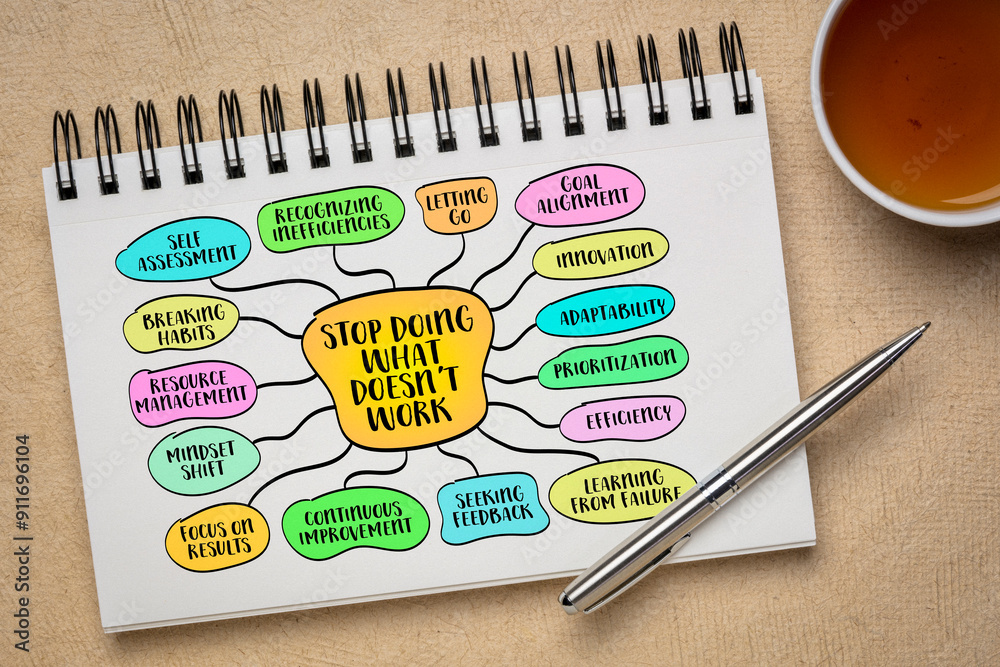 SELF
ASSESSMENT
RECOGNIZING
INEFFICIENCIES
LETTING
GO
GOAL
ALIGNMENT
INNOVATION
ADAPTABILITY
PRIORITIZATION
EFFICIENCY
LEARNING
FROM FAILURE
SEEKING
FEEDBACK
CONTINUOUS
IMPROVEMENT
FOCUS ON
RESULTS
MINDSET
SHIFT
RESOURCE
MANAGEMENT
BREAKING
HABITS
STOP DOING
WHAT
DOESN'T
WORK
Adobe Stock | #911696104
Adobe Stock